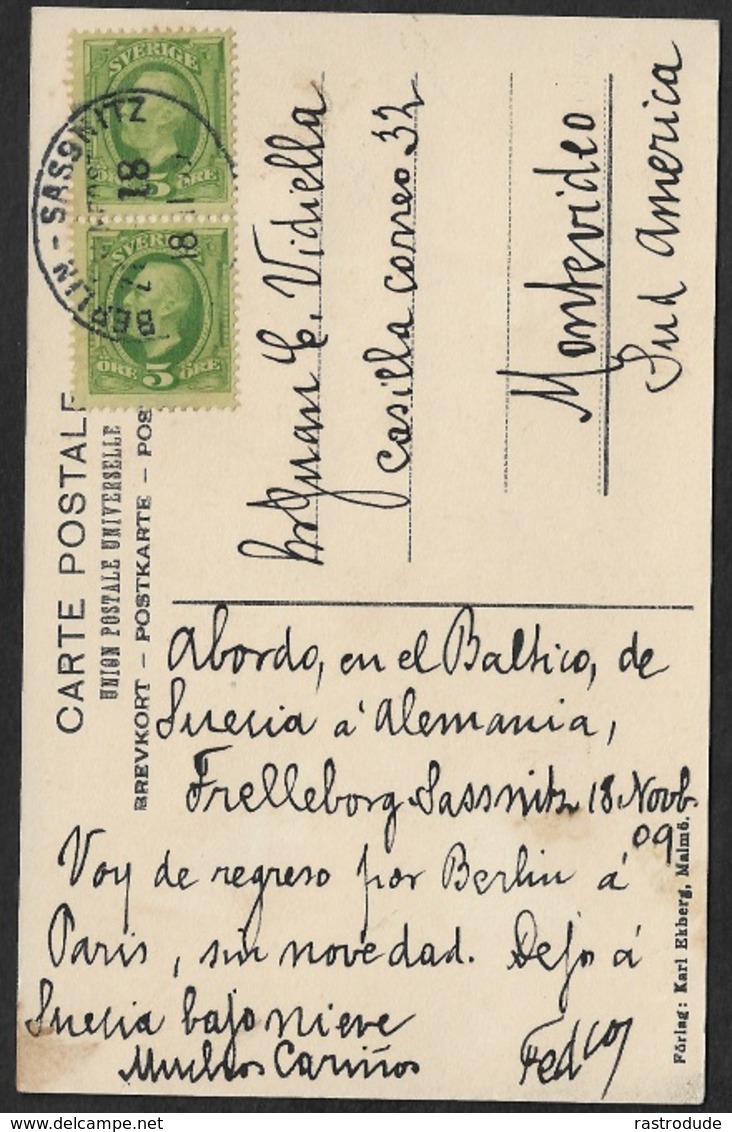 CARTE POSTALE
UNION POSTALE UNIVERSELLE
BREVKORT – POSTKARTE – POS
SVERIGE
5
ÖRE ÖRE
SVERIGE
ÖRE 5 ÖRE
BERLIN - SASSNITZ
18
Juan C. Vidiella
Casilla correo 32
Montevideo
Sud America
Abordo, en el Baltico, de
Suecia á Alemania,
Trelleborg Sassnitz 18 Novb.
09
Voy de regreso por Berlin á
Paris, sin novedad. Dejo á
Suecia bajo nieve
Muchos Cariños
Fedco
Förlag: Karl Ekberg, Malmö.
rastrodude